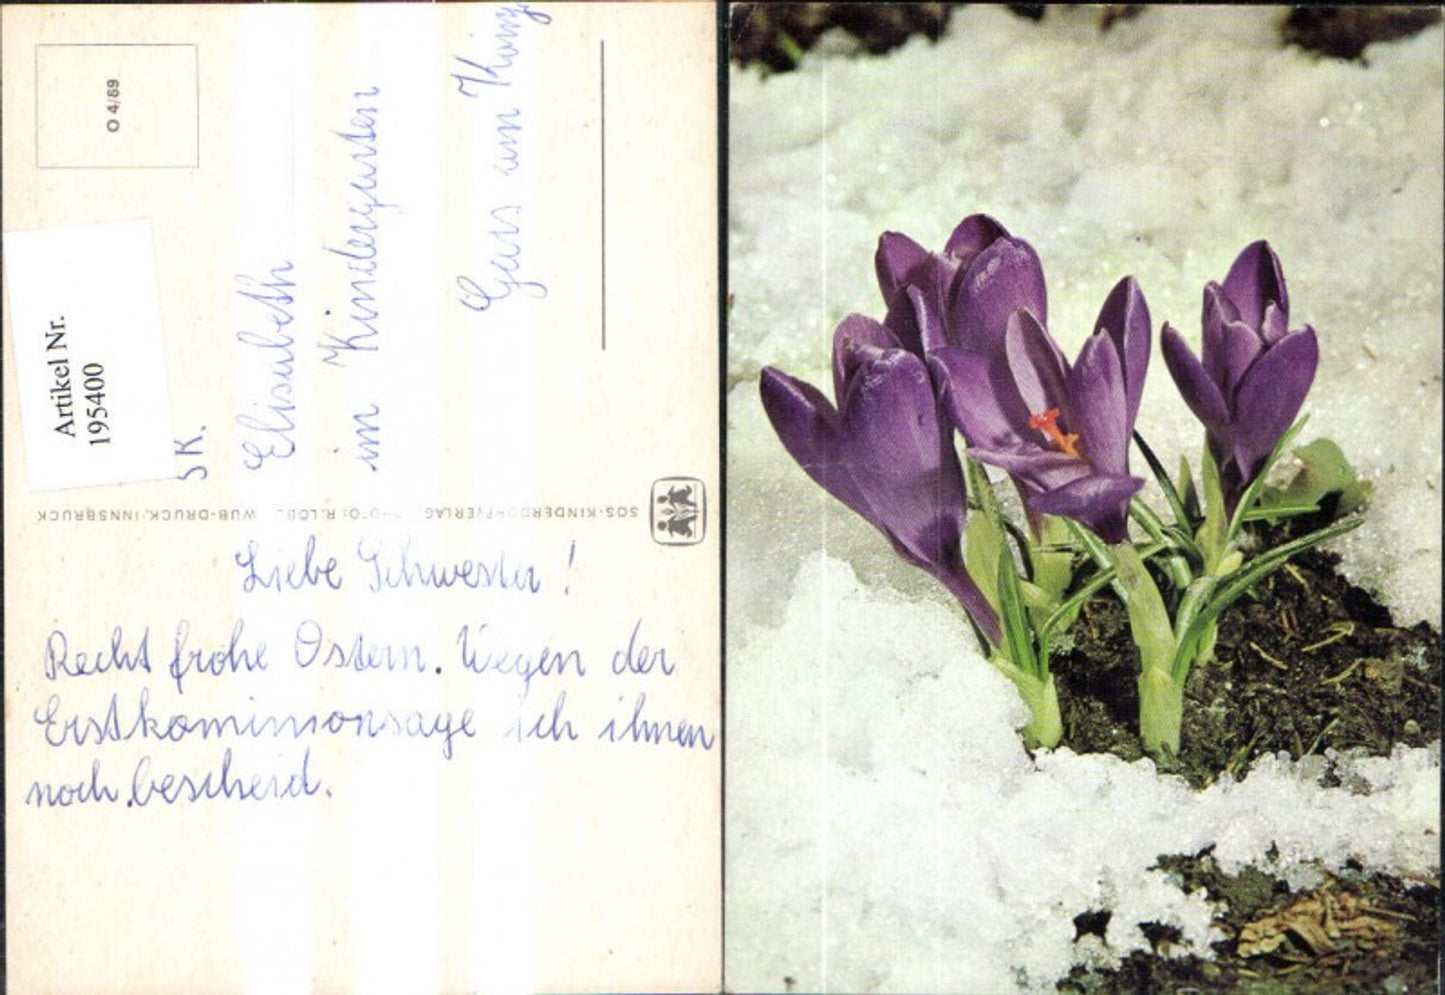 O 4/89
Artikel Nr.
195400
SK.
Elisabeth
im Kindergarten
Gars am
SOS-KINDERDORFVERLAG PHOTO: R. LÖBL WUB-DRUCK, INNSBRUCK
Liebe Schwester!
Recht frohe Ostern. Wegen der
Erstkommionsage ich ihnen
noch bescheid.